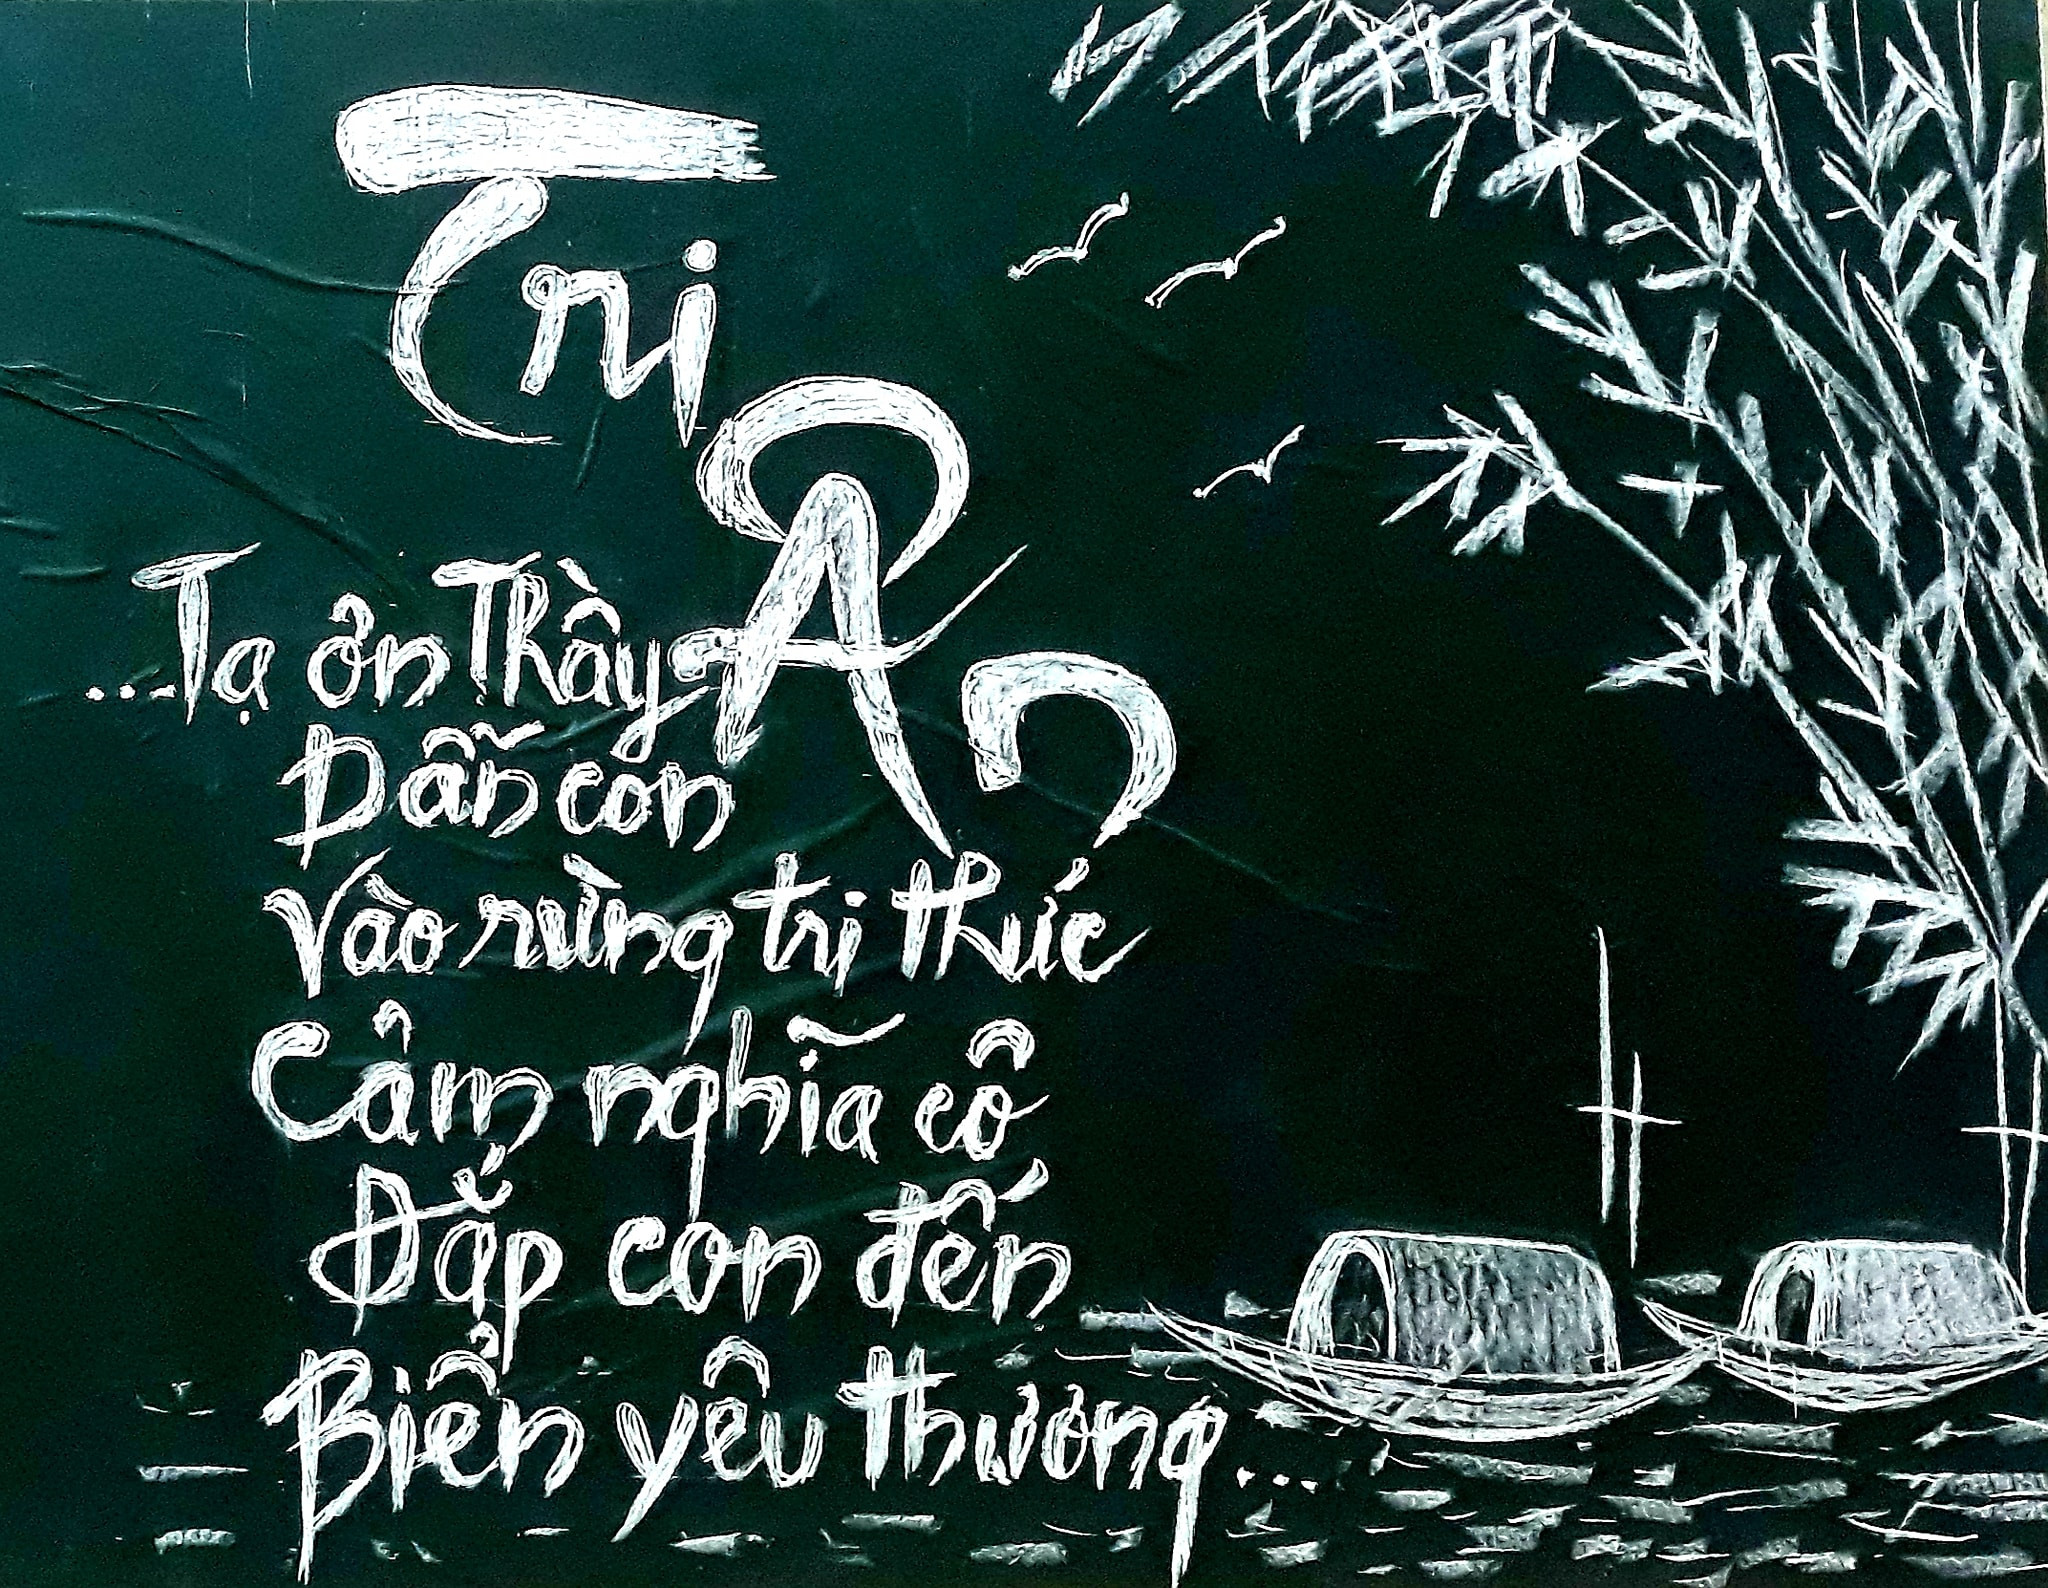 Tri
Ân
...Tạ ơn Thầy
Dẫn con
Vào rừng tri thức
Cảm nghĩa cô
Đắp con đến
Biển yêu thương...